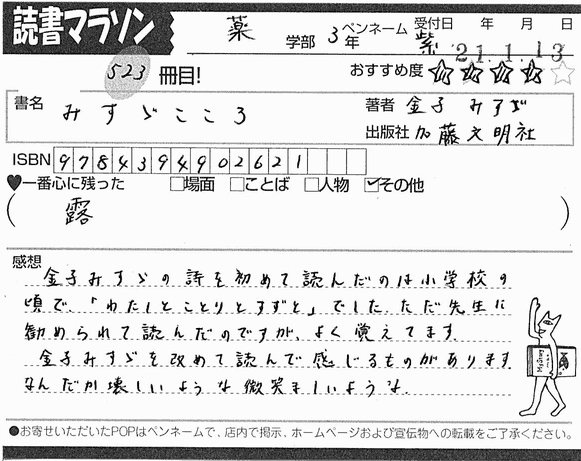 読書マラソン
薬 学部 3年 ペンネーム 紫 受付日 年 月 日
21.1.13
523 冊目! おすすめ度 ☆☆☆☆☆
書名 みすゞこころ 著者 金子 みすゞ
出版社 加藤文明社
ISBN 9784394902621
♥一番心に残った □場面 □ことば □人物 ☑その他
( 露 )
感想
金子みすゞの詩を初めて読んだのは小学校の
頃で、「わたしとことりとすずと」でした。ただ先生に
勧められて読んだのですが、よく覚えてます。
金子みすゞを改めて読んで感じるものがあります。
なんだか壊しいような微笑ましいような。
●お寄せいただいたPOPはペンネームで、店内で掲示、ホームページおよび宣伝物への転載をご了承ください。